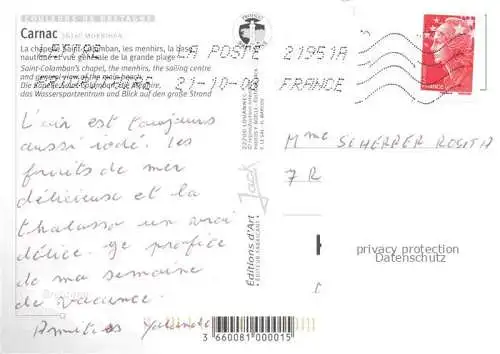 COULEURS DE BRETAGNE
Carnac 56340 MORBIHAN
La chapelle Saint-Colomban, les menhirs, la base
nautique et vue générale de la grande plage
Saint-Colomban's chapel, the menhirs, the sailing centre
and general view of the main beach
Die Kapelle Saint-Colomban, die Menhire,
das Wassersportzentrum und Blick auf den große Strand
LA POSTE 21951A
21-10-08 FRANCE
L'air est toujours
aussi iodé. les
fruits de mer
délicieux et la
thalasso un vrai
délice. Je profite
de ma semaine
de vacance.
Amitiés Yolande
Jack
Editions d'Art
Mme SCHERRER ROSITA
7 R
privacy protection
Datenschutz
3 660081 000015